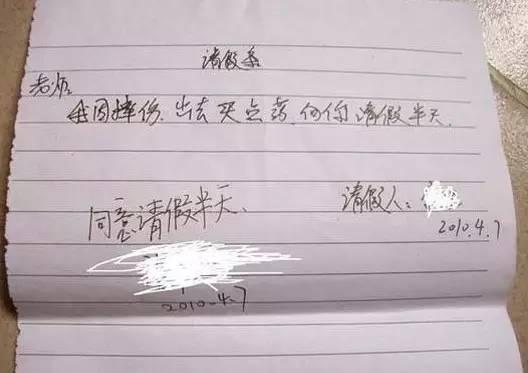 请假条
老师:
我因摔伤,出去买点药,向你请假半天.
请假人:
2010.4.7
同意请假半天.
2010.4.7